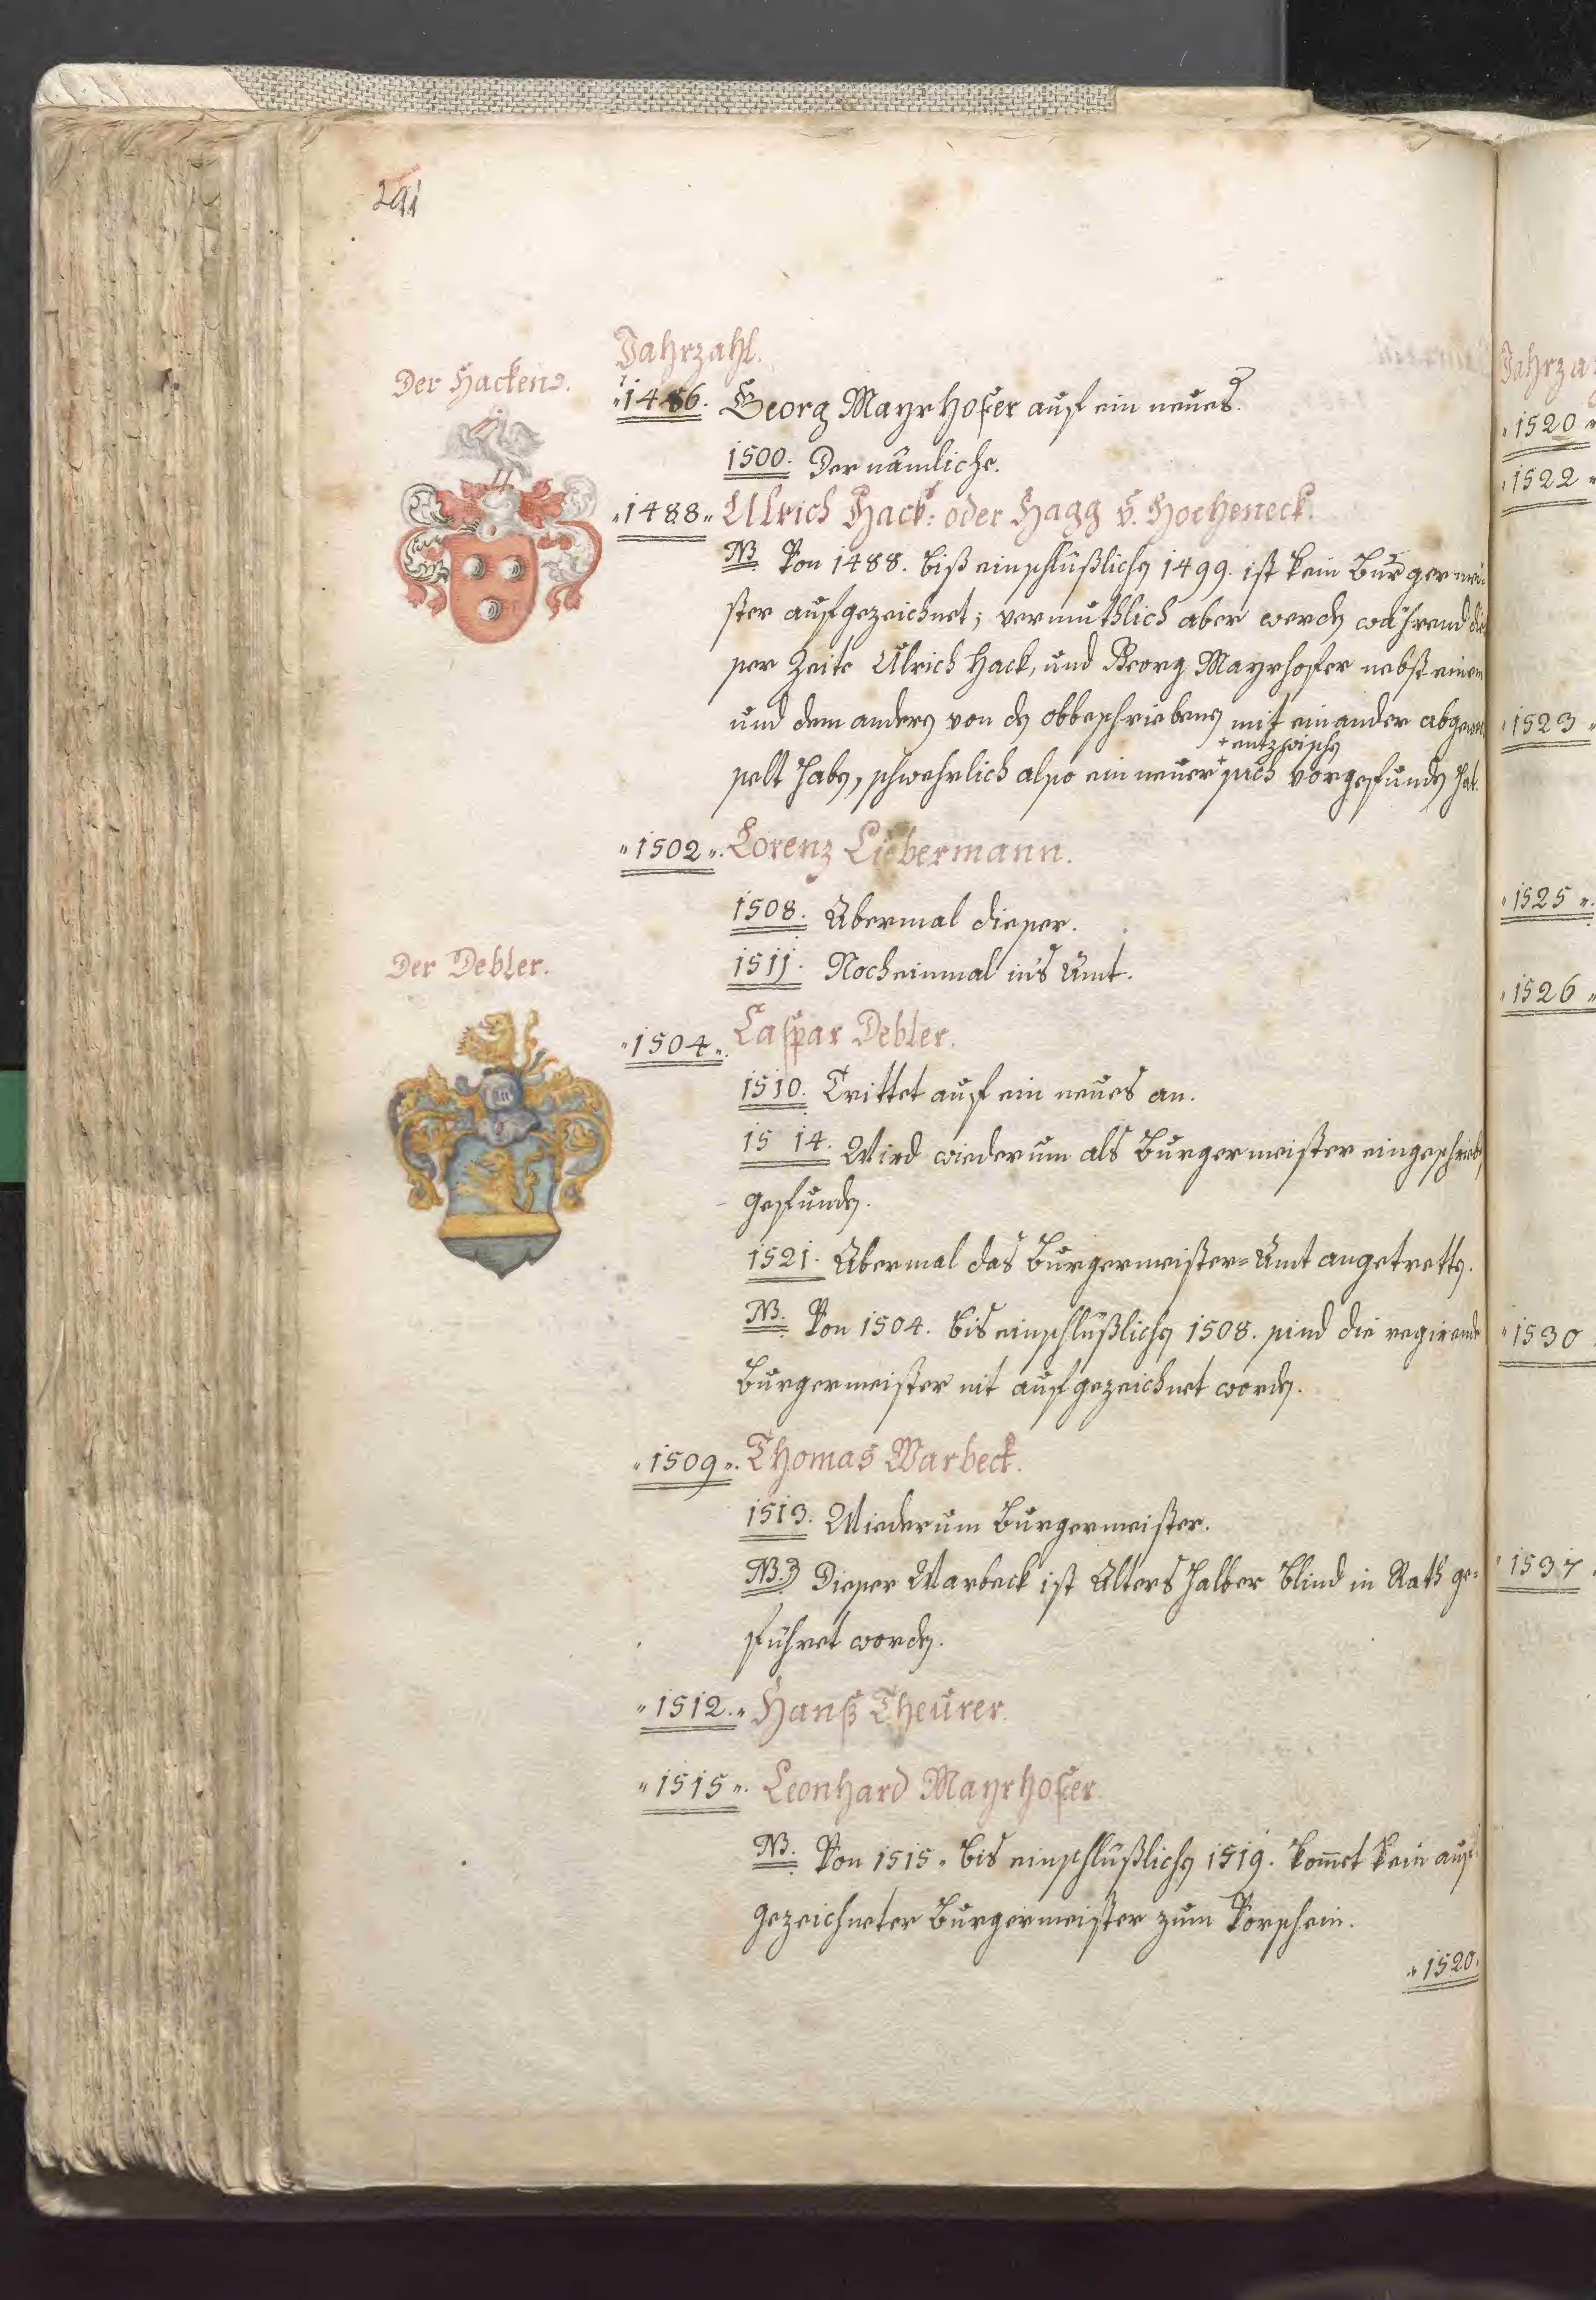 291
Jahrzahl.
Der Hackens.
"1486. Georg Mayrhofer auf ein neues.
1500. Der nämliche.
"1488" Ulrich Hack: oder Hagg v. Hocheneck.
NB. Von 1488. biß einschlüßlichen 1499. ist kein Burgermei=
ster aufgezeichnet; vermuthlich aber werden während die
ser Zeite Ulrich Hack, und Georg Mayrhofer nebst einem
und dem andern von den obbeschriebenen mit einander abgewe
+ entzwischen
selt haben, schwehrlich also ein neuer + sich vorgefunden hat.
"1502". Lorenz Liebermann.
1508. Abermal dieser.
1511. Noch einmal in's Amt.
Der Debler.
"1504". Caspar Debler.
1510. Trittet auf ein neues an.
1514. Wird wiederum als Burgermeister eingeschrieben
gefunden.
1521. Abermal das Burgermeister=Amt angetretten.
NB. Von 1504. bis einschlüßlichen 1508. sind die regirende
Burgermeister nit aufgezeichnet worden.
"1509". Thomas Warbeck.
1513. Wiederum Burgermeister.
NB. Dieser Warbeck ist Alters halber blind in Rath ge=
führet worden.
"1512." Hanß Theurer.
"1515". Leonhard Mayrhofer.
NB. Von 1515. bis einschlüßlichen 1519. kom̄et kein auf
gezeichneter Burgermeister zum Vorschein.
"1520.
Jahrza
"1520"
"1522"
"1523"
"1525".
"1526"
"1530
"1537